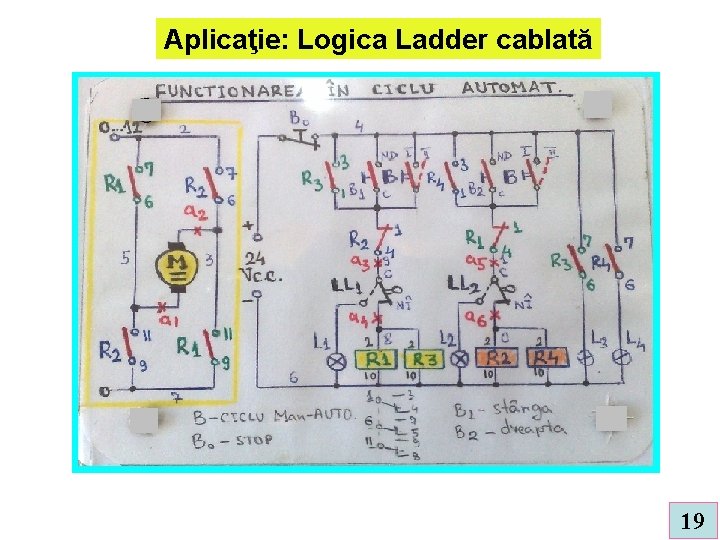 Aplicaţie: Logica Ladder cablată
FUNCTIONAREA ÎN CICLU AUTOMAT.
0...12
2
B0
4
7
R1
6
7
R2
6
a2
3
R3
1
ND
I
II
B
C
R4
3
1
B2
ND
I
II
B
C
5
M
3
a1
+
24
Vc.c.
-
1
R2
4
a3
LL1
NÎ
a4
1
R1
4
a5
LL2
NÎ
a6
7
R3
6
7
R4
6
11
R2
9
11
R1
9
7
L1
8
2
R1
10
2
R3
10
L2
9
2
R2
10
2
R4
10
L3
L4
6
B-CICLU Man-AUTO.
B0 - STOP
10
3
4
6
7
5
11
9
8
B1 - stânga
B2 - dreapta
19